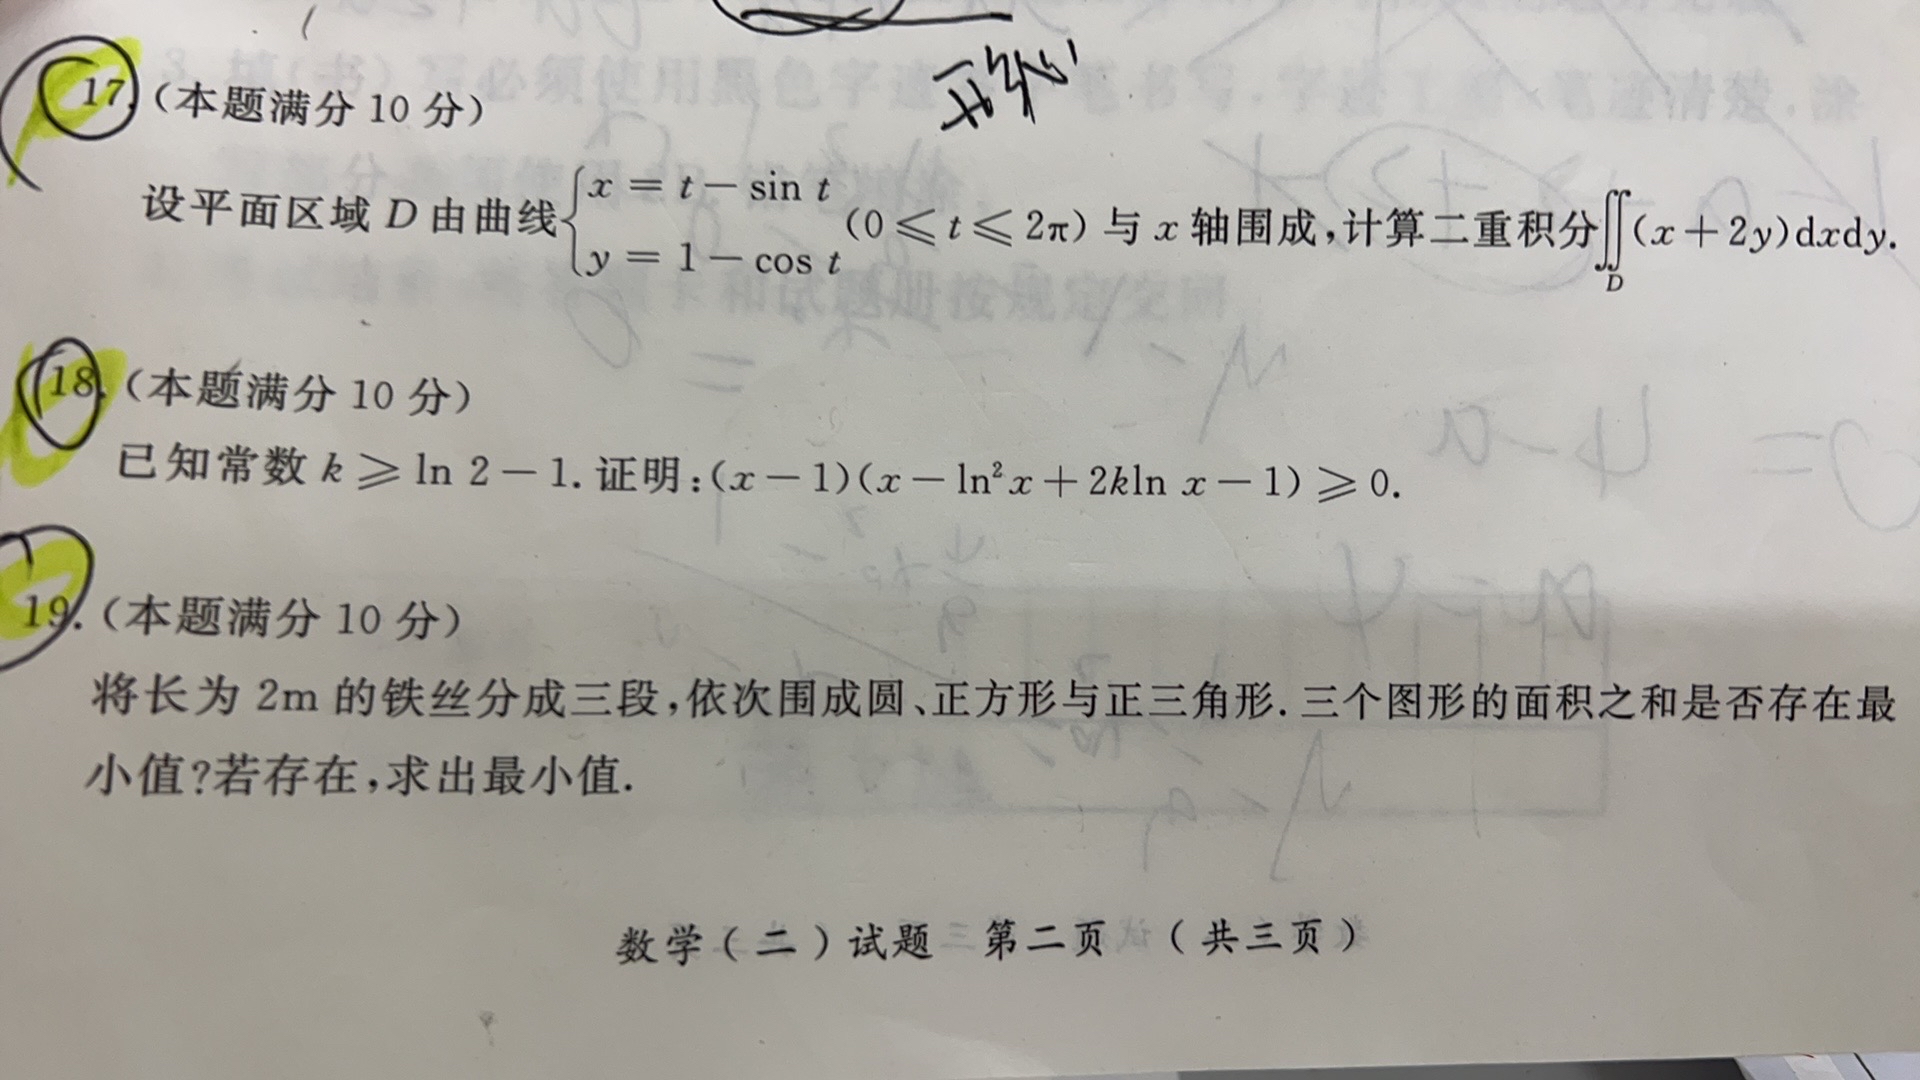 17.(本题满分 10 分)
设平面区域 D 由曲线{x = t − sin t, y = 1 − cos t (0 ⩽ t ⩽ 2π) 与 x 轴围成,计算二重积分∬_D (x + 2y)dxdy.
18.(本题满分 10 分)
已知常数 k ⩾ ln 2 − 1. 证明:(x − 1)(x − ln²x + 2kln x − 1) ⩾ 0.
19.(本题满分 10 分)
将长为 2m 的铁丝分成三段,依次围成圆、正方形与正三角形. 三个图形的面积之和是否存在最
小值?若存在,求出最小值.
数学(二)试题 第二页 (共三页)